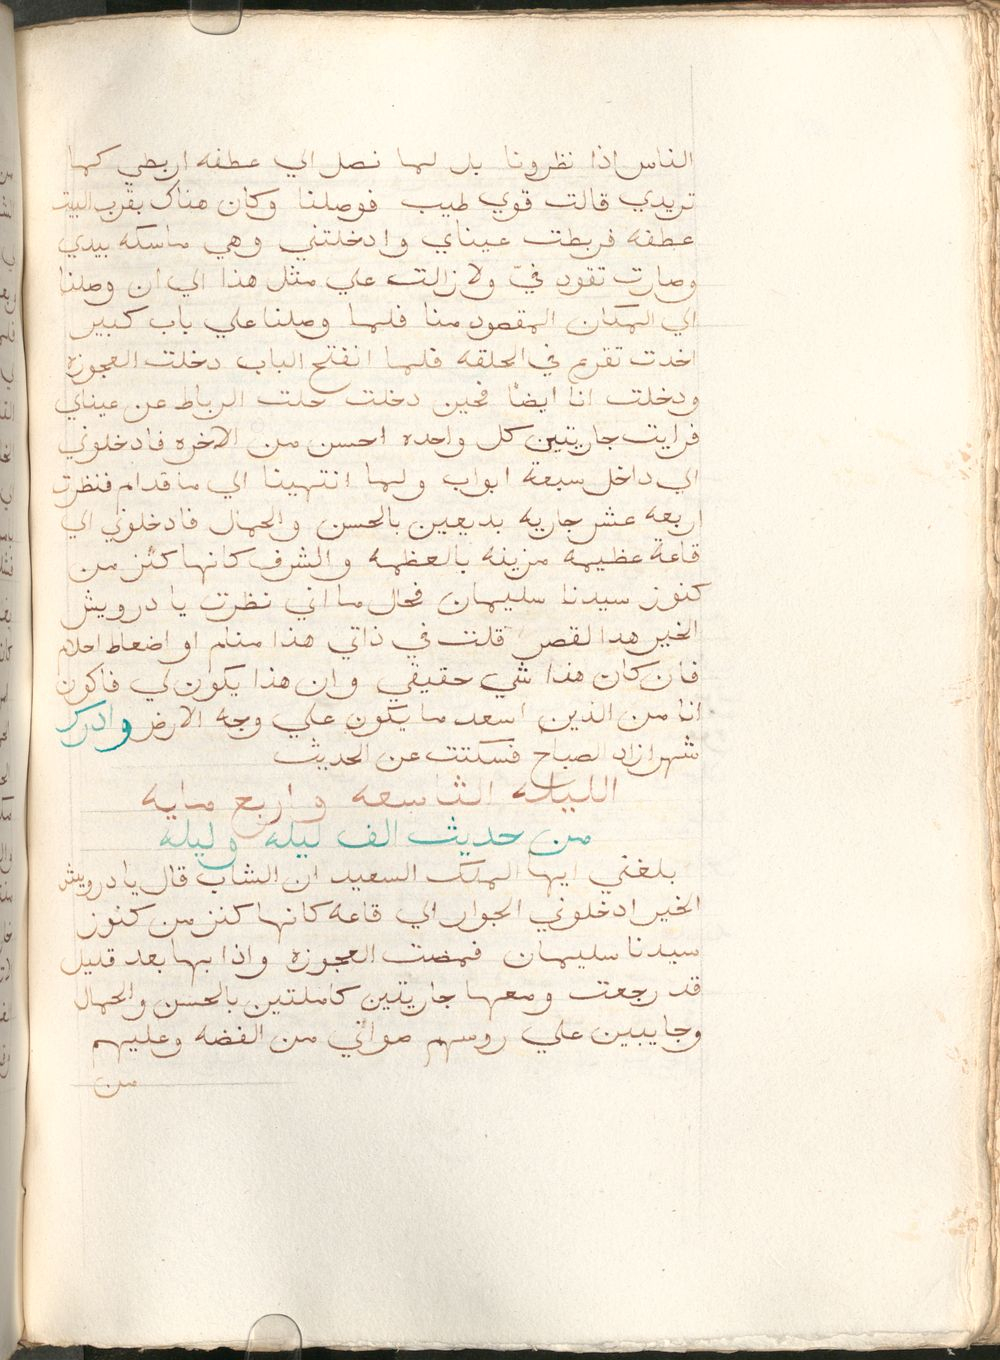 الناس اذا نظرونا بل لما نصل الي عطفه اربطي كما
تريدي قالت قوي طيب فوصلنا وكان هناك بقرب البيت
عطفه فربطت عيناي وادخلتني وهي ماسكه بيدي
وصارت تقود فيّ ولا زالت علي مثل هذا الي ان وصلنا
الي المكان المقصود منا فلما وصلنا علي باب كبير
اخدت تقرع في الحلقه فلما انفتح الباب دخلت العجوزه
ودخلت انا ايضاً فحين دخلت حلت الرباط عن عيناي
فرايت جاريتين كل واحده احسن من الاخره فادخلوني
الي داخل سبعة ابواب ولما انتهينا الي ما قدام فنظرت
اربعه عشر جاريه بديعين بالحسن والجمال فادخلوني الي
قاعة عظيمه مزينه بالعظمه والشرف كانها كنز من
كنوز سيدنا سليمان فحال ما اني نظرت يا درويش
الخير هدا القصر قلت في ذاتي هذا منام او اضعاط احلام
فان كان هذا شي حقيقي وان هذا يكون لي فاكون
انا من الذين اسعد ما يكون علي وجه الارض وادرك
شهرازاد الصباح فسكتت عن الحديث
الليلة التاسعه واربع مايه
من حديث الف ليله وليله
بلغني ايها الملك السعيد ان الشاب قال يا درويش
الخير ادخلوني الجوار الي قاعه كانها كنز من كنوز
سيدنا سليمان فمضت العجوزه واذا بها بعد قليل
قد رجعت ومعها جاريتين كاملتين بالحسن والجمال
وجايبين علي روسهم صواني من الفضه وعليهم
من